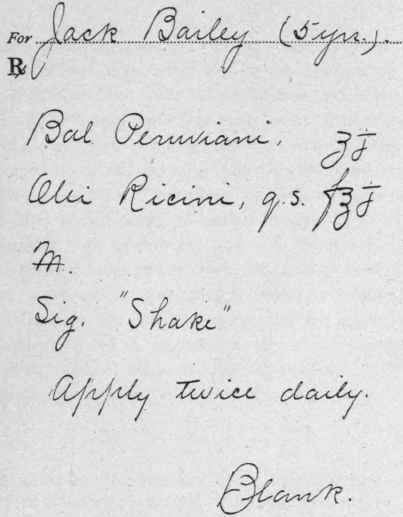 For Jack Bailey (5 yrs.).
℞
Bal Peruviani, ʒj
Olei Ricini, q.s. f℥j
M.
Sig. "Shake"
Apply twice daily.
Blank.